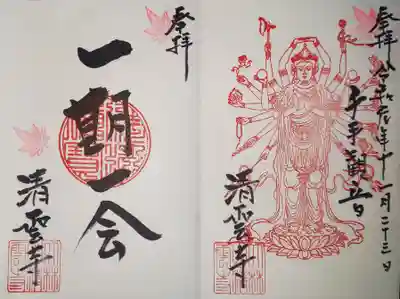 登拝
令和年十一月二十三日
千手観音
清寺
登拝
一期一会
清寺